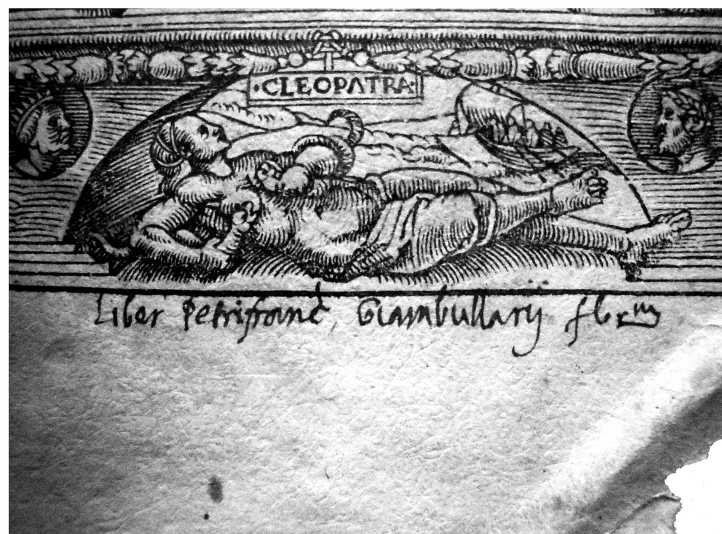 ·CLEOPATRA·
Liber Petrifranc̉, Giambullarij